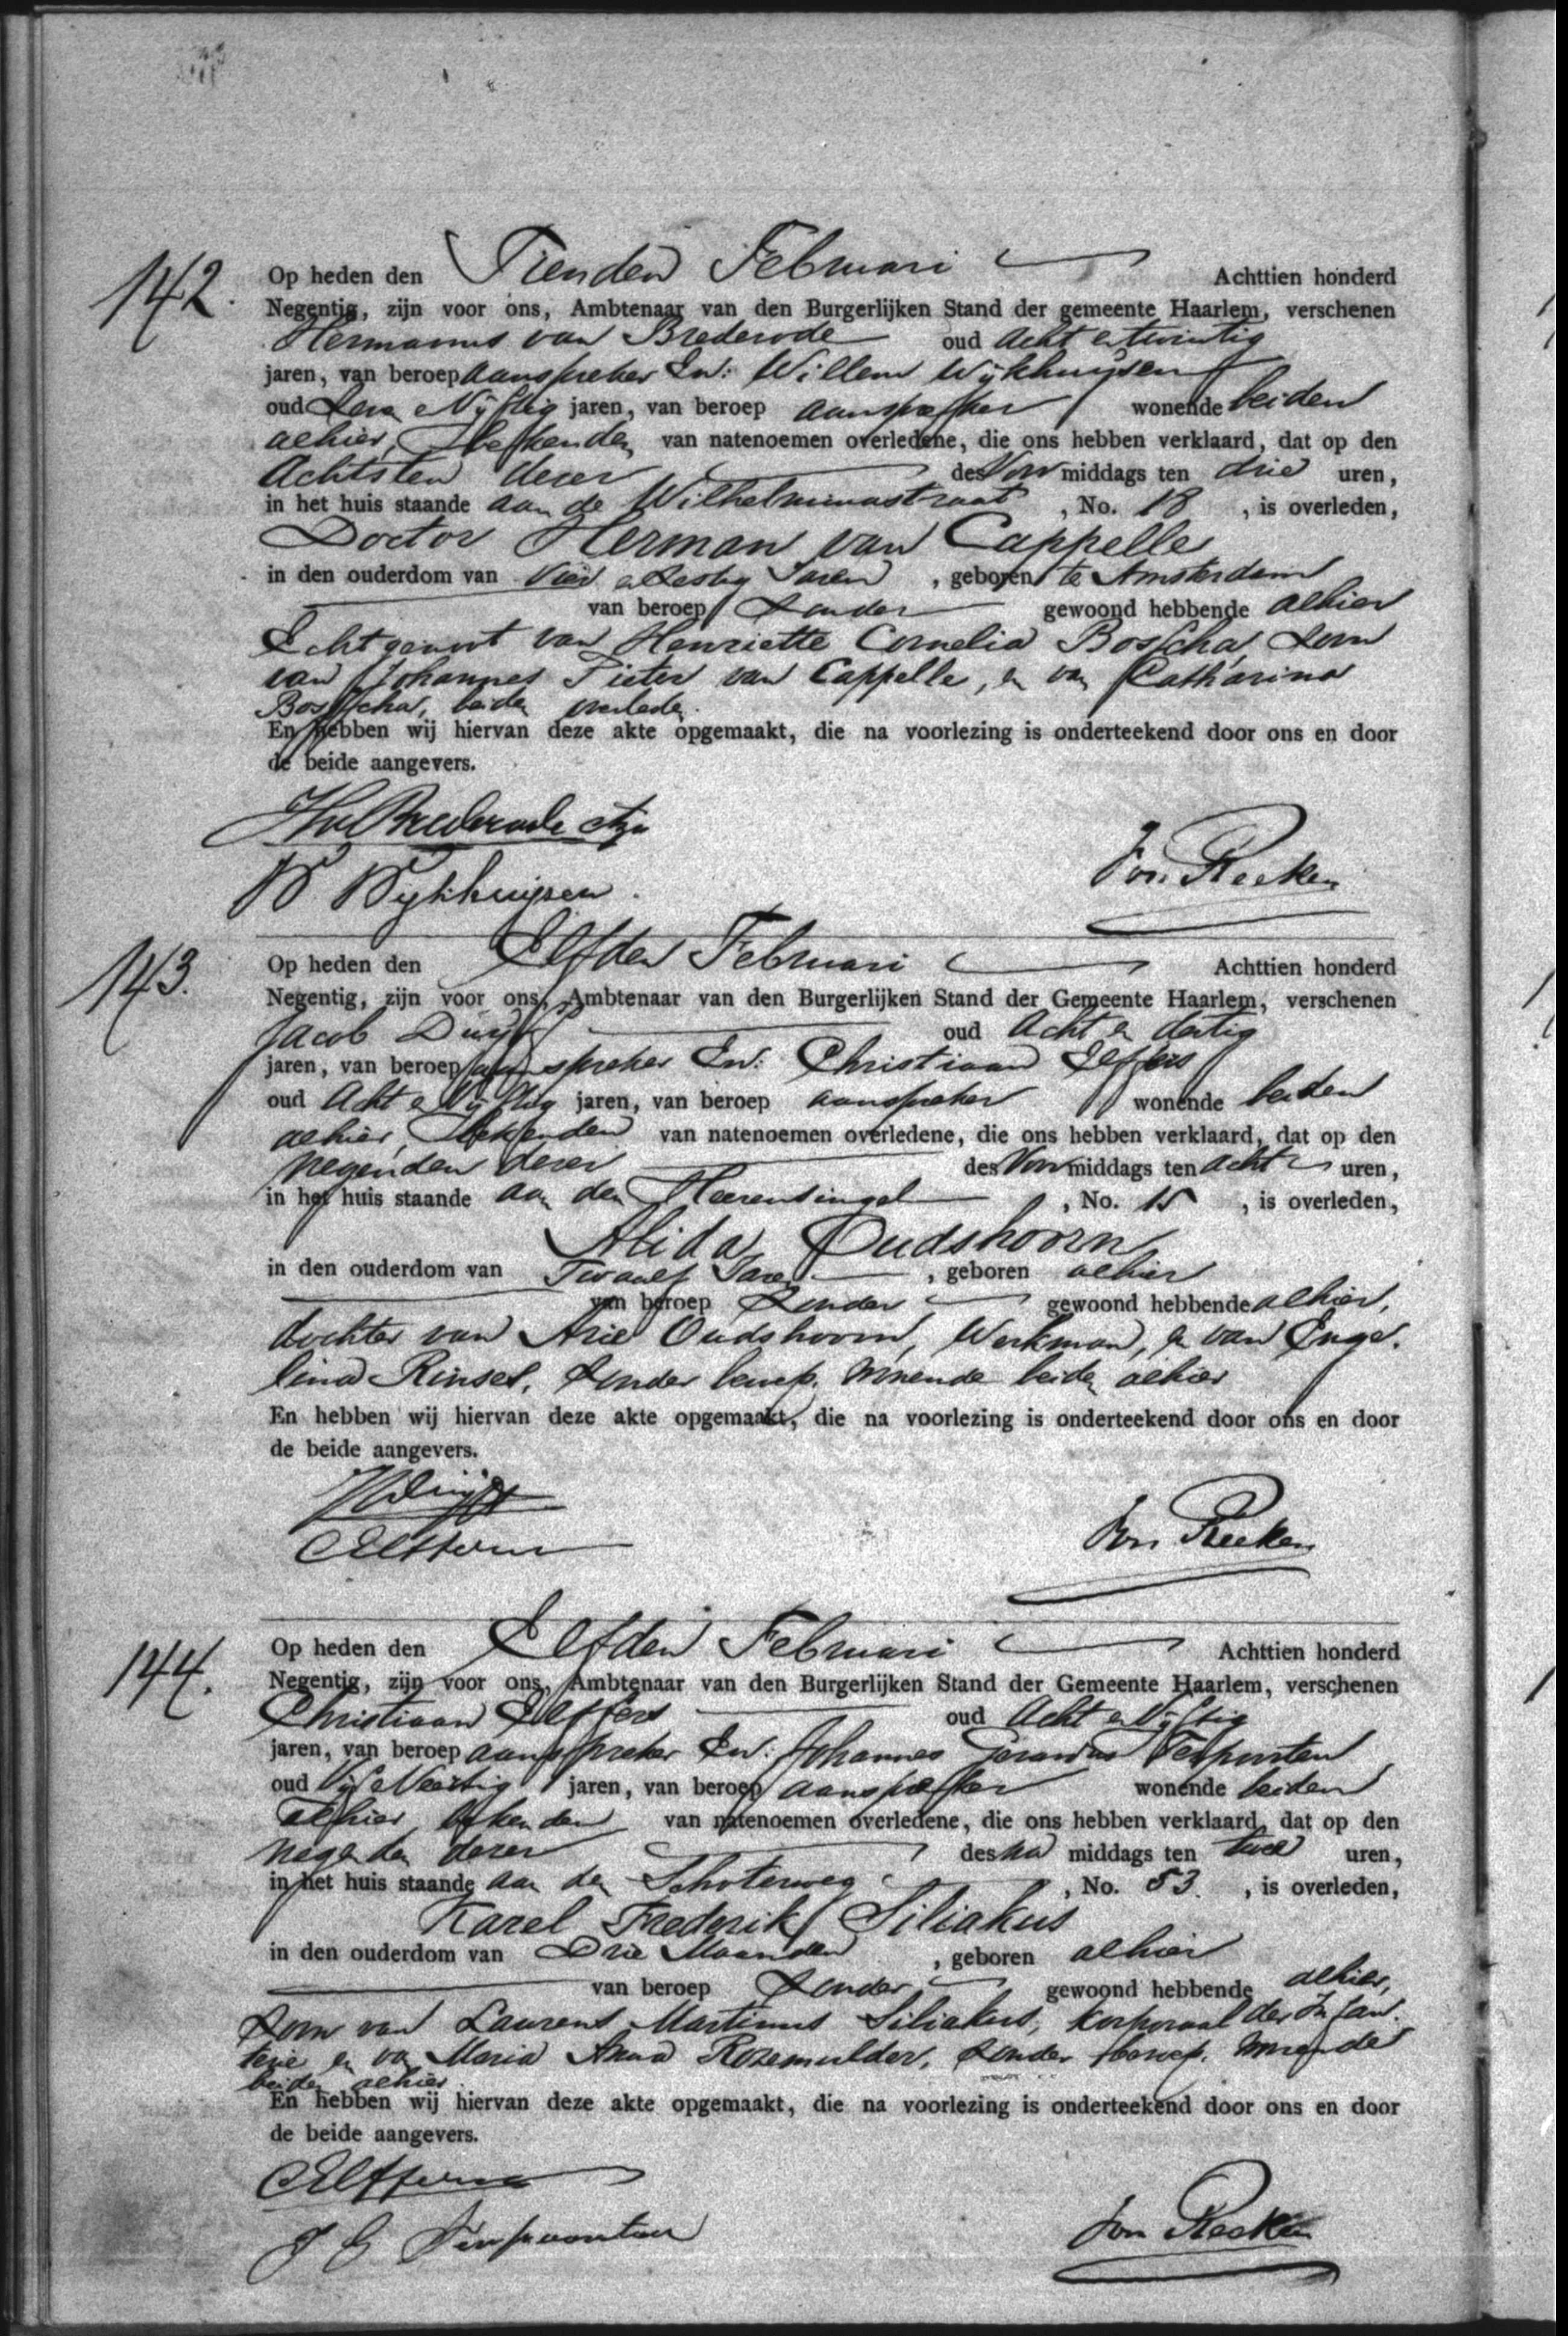 142.
Op heden den Tienden Februari Achttien honderd
Negentig, zijn voor ons, Ambtenaar van den Burgerlijken Stand der gemeente Haarlem, verschenen
Hermanus van Brederode oud acht entwintig
jaren, van beroep aanspreker En: Willem Wijkhuijsen
oud Zes en Vijftig jaren, van beroep aanspreker wonende beiden
alhier, Bekenden van natenoemen overledene, die ons hebben verklaard, dat op den
Achtsten dezer des Voor middags ten drie uren,
in het huis staande aan de Wilhelminastraat, No. 18, is overleden,
Doctor Herman van Cappelle
in den ouderdom van Vier en Zestig Jaren, geboren te Amsterdam
van beroep Zonder gewoond hebbende alhier
Echtgenoot van Henriette Cornelia Bosscha, Zoon
van Johannes Pieter van Cappelle, en van Catharina
Bosscha, beiden overleden.
En hebben wij hiervan deze akte opgemaakt, die na voorlezing is onderteekend door ons en door
de beide aangevers.
HvBrederode
W Wijkhuijsen. Von Reeken
143.
Op heden den Elfden Februari Achttien honderd
Negentig, zijn voor ons, Ambtenaar van den Burgerlijken Stand der Gemeente Haarlem, verschenen
Jacob Duijf oud Acht en dertig
jaren, van beroep aanspreker En: Christiaan Elffers
oud Acht en Vijftig jaren, van beroep aanspreker wonende beiden
alhier, Bekenden van natenoemen overledene, die ons hebben verklaard, dat op den
negenden dezer des Voor middags ten acht uren,
in het huis staande aan den Heerensingel, No. 15, is overleden,
Alida Oudshoorn
in den ouderdom van Twaalf Jaren, geboren alhier
van beroep Zonder gewoond hebbende alhier,
dochter van Arie Oudshoorn, Werkman, en van Enge-
lina Rinsel, Zonder beroep. Wonende beiden alhier
En hebben wij hiervan deze akte opgemaakt, die na voorlezing is onderteekend door ons en door
de beide aangevers.
JDuijf
CElffers Von Reeken
144.
Op heden den Elfden Februari Achttien honderd
Negentig, zijn voor ons, Ambtenaar van den Burgerlijken Stand der Gemeente Haarlem, verschenen
Christiaan Elffers oud Acht en Vijftig
jaren, van beroep aanspreker En: Johannes Gerardus
oud Vijf en Veertig jaren, van beroep aanspreker wonende beiden
alhier, bekenden van natenoemen overledene, die ons hebben verklaard, dat op den
negenden dezer des na middags ten twee uren,
in het huis staande aan den Schoterweg, No. 53, is overleden,
Karel Frederik Siliakus
in den ouderdom van Drie Maanden, geboren alhier
van beroep Zonder gewoond hebbende alhier,
Zoon van Laurens Martinus Siliakus, Korporaal der Infan-
terie en van Maria Anna Rozemulder, Zonder beroep. Wonende
beiden alhier.
En hebben wij hiervan deze akte opgemaakt, die na voorlezing is onderteekend door ons en door
de beide aangevers.
CElffers
J G Von Reeken